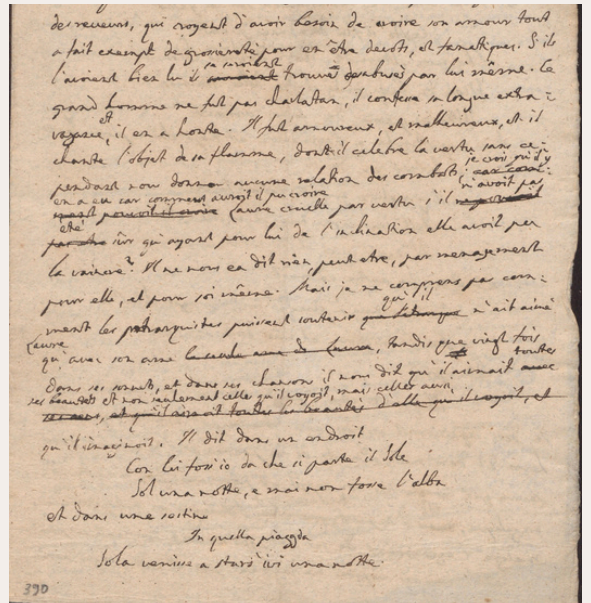 des reveurs, qui croyent d'avoir besoin de croire son amour tout
a fait exempt de grossiereté pour en être devots, et fanatiques. S'ils
l'avoient bien lu ils se seroient trouvés desabusés par lui même. Ce
grand homme ne fut pas charlatan, il confesse sa longue extra=
vagance, et il en a honte. Il fut amoureux, et malheureux, et il
chante l'objet de sa flamme, dont il celebre la vertu sans ce=
pendant nous donner aucune relation des combats; je crois qu'il y
en a eu car comment auroit il pu croire Laure cruelle par vertu s'il n'avoit pas
été sûr qu'ayant pour lui de l'inclination elle avoit peu
la vaincre? Il ne nous en dit rien peut etre, par menagement
pour elle, et pour soi même. Mais je ne comprens pas com=
ment les petrarquistes puissent soutenir qu'il n'ait aimé
Laure
qu'avec son ame, tandis que vingt fois
dans ses sonnets, et dans ses chansons il nous dit qu'il aimait toutes
ses beautés et non seulement celles qu'il voyoit, mais celles aussi
qu'il imaginoit. Il dit dans un endroit
Con lei foss'io da che si parte il Sole
Sol una notte, e mai non fosse l'alba
et dans une sestine
In quella piaggia
Sola venisse a starsi ivi una notte.
390